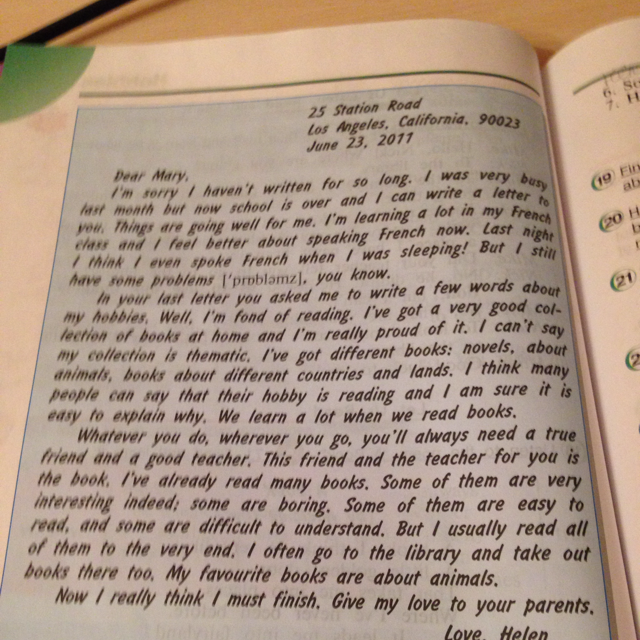 25 Station Road
Los Angeles, California, 90023
June 23, 2011
Dear Mary,
I'm sorry I haven't written for so long. I was very busy
last month but now school is over and I can write a letter to
you. Things are going well for me. I'm learning a lot in my French
class and I feel better about speaking French now. Last night
I think I even spoke French when I was sleeping! But I still
have some problems ['prɒbləmz], you know.
In your last letter you asked me to write a few words about
my hobbies. Well, I'm fond of reading. I've got a very good col-
lection of books at home and I'm really proud of it. I can't say
my collection is thematic. I've got different books: novels, about
animals, books about different countries and lands. I think many
people can say that their hobby is reading and I am sure it is
easy to explain why. We learn a lot when we read books.
Whatever you do, wherever you go, you'll always need a true
friend and a good teacher. This friend and the teacher for you is
the book. I've already read many books. Some of them are very
interesting indeed; some are boring. Some of them are easy to
read, and some are difficult to understand. But I usually read all
of them to the very end. I often go to the library and take out
books there too. My favourite books are about animals.
Now I really think I must finish. Give my love to your parents.
Love, Helen
6.
7. H
19
20
21